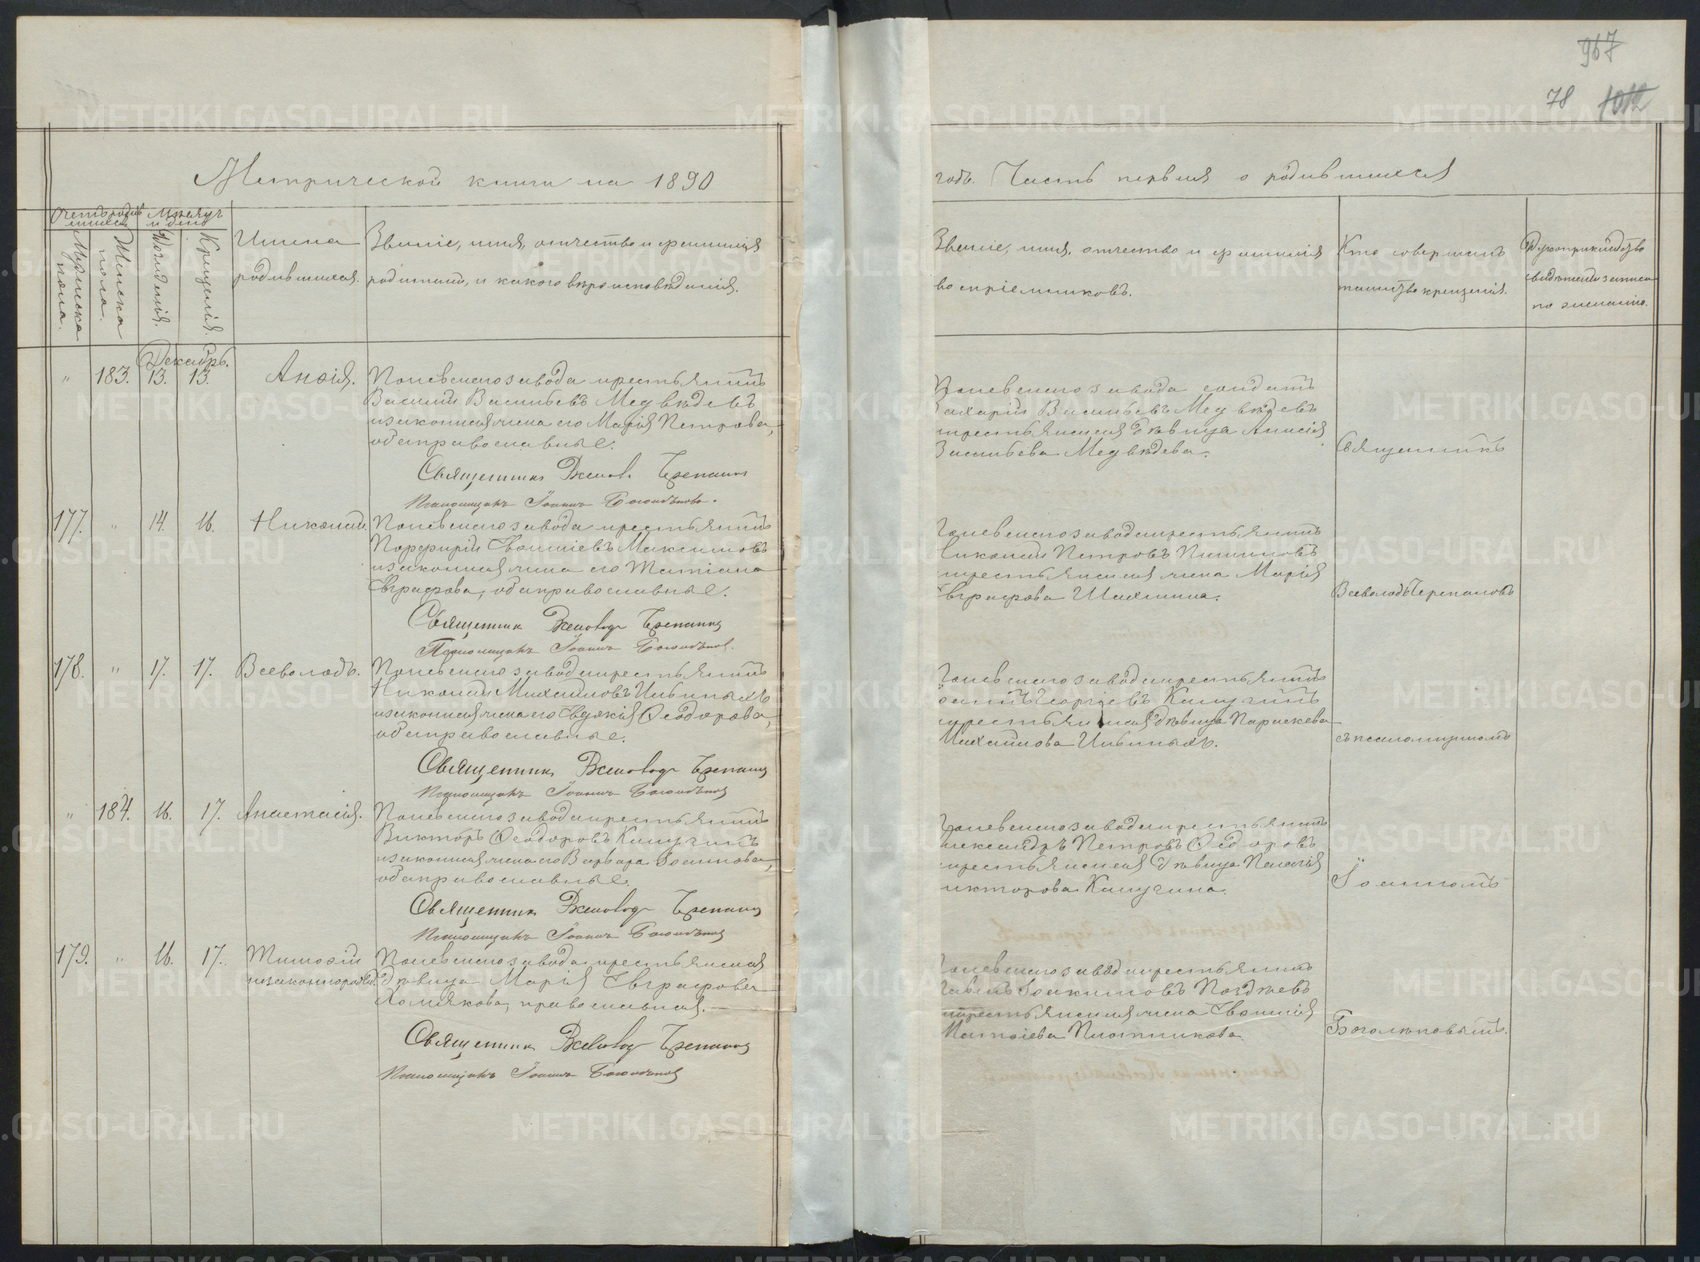 967
78 1012
Метрической книги на 1890
годъ. Часть первая о родившихся
Счетъ родившихся
Мѣсяцъ и день
Мужеска пола.
Женска пола.
Рожденія.
Крещенія.
Имена
родившихся.
Званіе, имя, отчество и фамилія
родителей, и какого вѣроисповѣданія.
Званіе, имя, отчество и фамилія
воспріемниковъ.
Кто совершалъ
таинство крещенія.
Рукоприкладство
свидѣтелей записи
по желанію.
Декабрь.
" 183. 13. 13. Анѳія. Полевскаго завода крестьянинъ
Василій Васильевъ Медвѣдевъ
и законная жена его Марія Петрова,
оба православные.
Священникъ Всеволодъ Черепановъ
Псаломщикъ Іоаннъ Боголѣповъ.
Полевскаго завода солдатъ
Захарій Васильевъ Медвѣдевъ
крестьянская дѣвица Анисія
Васильева Медвѣдева.
Священникъ
177. " 14. 16. Николай. Полевскаго завода крестьянинъ
Порфирій Максимовъ
и законная жена его Татіана
Евграфова, оба православные.
Священникъ Всеволодъ Черепановъ
Псаломщикъ Іоаннъ Боголѣповъ.
Полевскаго завода крестьянинъ
Николай Петровъ
крестьянская жена Марія
Евграфова
Всеволодъ Черепановъ
178. " 17. 17. Всеволодъ. Полевскаго завода крестьянинъ
Николай Михайловъ
и законная жена его Евдокія Ѳеодорова,
оба православные.
Священникъ Всеволодъ Черепановъ
Псаломщикъ Іоаннъ Боголѣповъ
Полевскаго завода крестьянинъ
Георгіевъ
крестьянская дѣвица Параскева
Михайлова
съ псаломщикомъ
" 184. 16. 17. Анастасія. Полевскаго завода крестьянинъ
Викторъ Ѳеодоровъ
и законная жена его Варвара Іоаннова,
оба православные.
Священникъ Всеволодъ Черепановъ
Псаломщикъ Іоаннъ Боголѣповъ
Полевскаго завода крестьянинъ
Александръ Петровъ Ѳедоровъ
крестьянская дѣвица Пелагія
Викторова
Іоанномъ
179. " 16. 17. Тимоѳей Полевскаго завода крестьянская
незаконнорожд. дѣвица Марія Евграфова
Хомякова, православная.
Священникъ Всеволодъ Черепановъ
Псаломщикъ Іоаннъ Боголѣповъ
Полевскаго завода крестьянинъ
Іоакимовъ Поздѣевъ
крестьянская жена Евгенія
Матѳіева Плотникова
Боголѣповымъ.
METRIKI.GASO-URAL.RU